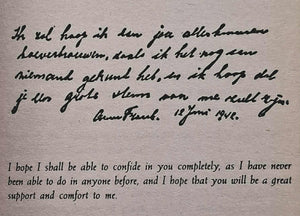 Ik zal hoop ik aan jou alles kunnen
toevertrouwen, zoals ik het nog aan
niemand gekund heb, en ik hoop dat
je een grote steun van me zult zijn.
Anne Frank. 12 Juni 1942.
I hope I shall be able to confide in you completely, as I have never
been able to do in anyone before, and I hope that you will be a great
support and comfort to me.